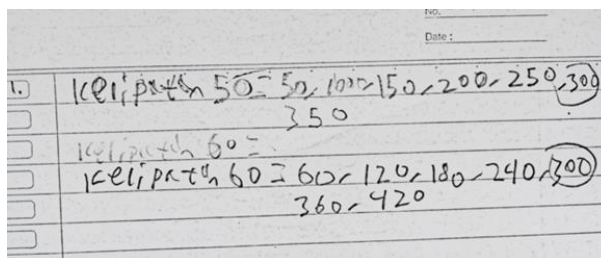 No.
Date :
1. Kelipatan 50 = 50, 100, 150, 200, 250, 300
350
Kelipatan 60 =
Kelipatan 60 = 60, 120, 180, 240, 300
360, 420